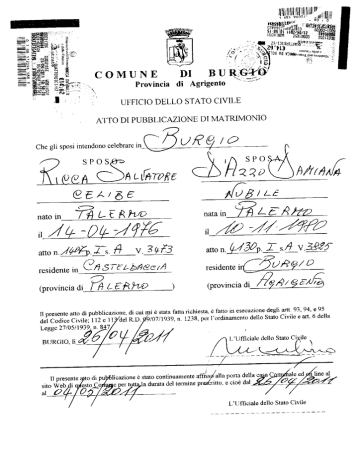 COMUNE DI BURGIO
Provincia di Agrigento
UFFICIO DELLO STATO CIVILE
ATTO DI PUBBLICAZIONE DI MATRIMONIO
Che gli sposi intendono celebrare in BURGIO
SPOSO SPOSA
RICCA SALVATORE D'AZZO DAMIANA
CELIBE NUBILE
nato in PALERMO nata in PALERMO
il 14-04-1976 il 10-11-1980
atto n. P. I s. A V. 3473 atto n. 4130 P. I s. A V.
residente in CASTELDACCIA residente in BURGIO
(provincia di PALERMO) (provincia di AGRIGENTO)
Il presente atto di pubblicazione, di cui mi è stata fatta richiesta, è fatto in esecuzione degli artt. 93, 94, e 95
del Codice Civile; 112 e 113 del R.D. 09/07/1939, n. 1238, per l'ordinamento dello Stato Civile e art. 6 della
Legge 27/05/1939, n. 847.
BURGIO, 26/04/2011 L'Ufficiale dello Stato Civile
Il presente atto di pubblicazione è stato continuamente affisso alla porta della casa Comunale ed on line al
sito Web di questo Comune per tutta la durata del termine prescritto, e cioè dal 26/04/2011
al 04/05/2011
L'Ufficiale dello Stato Civile